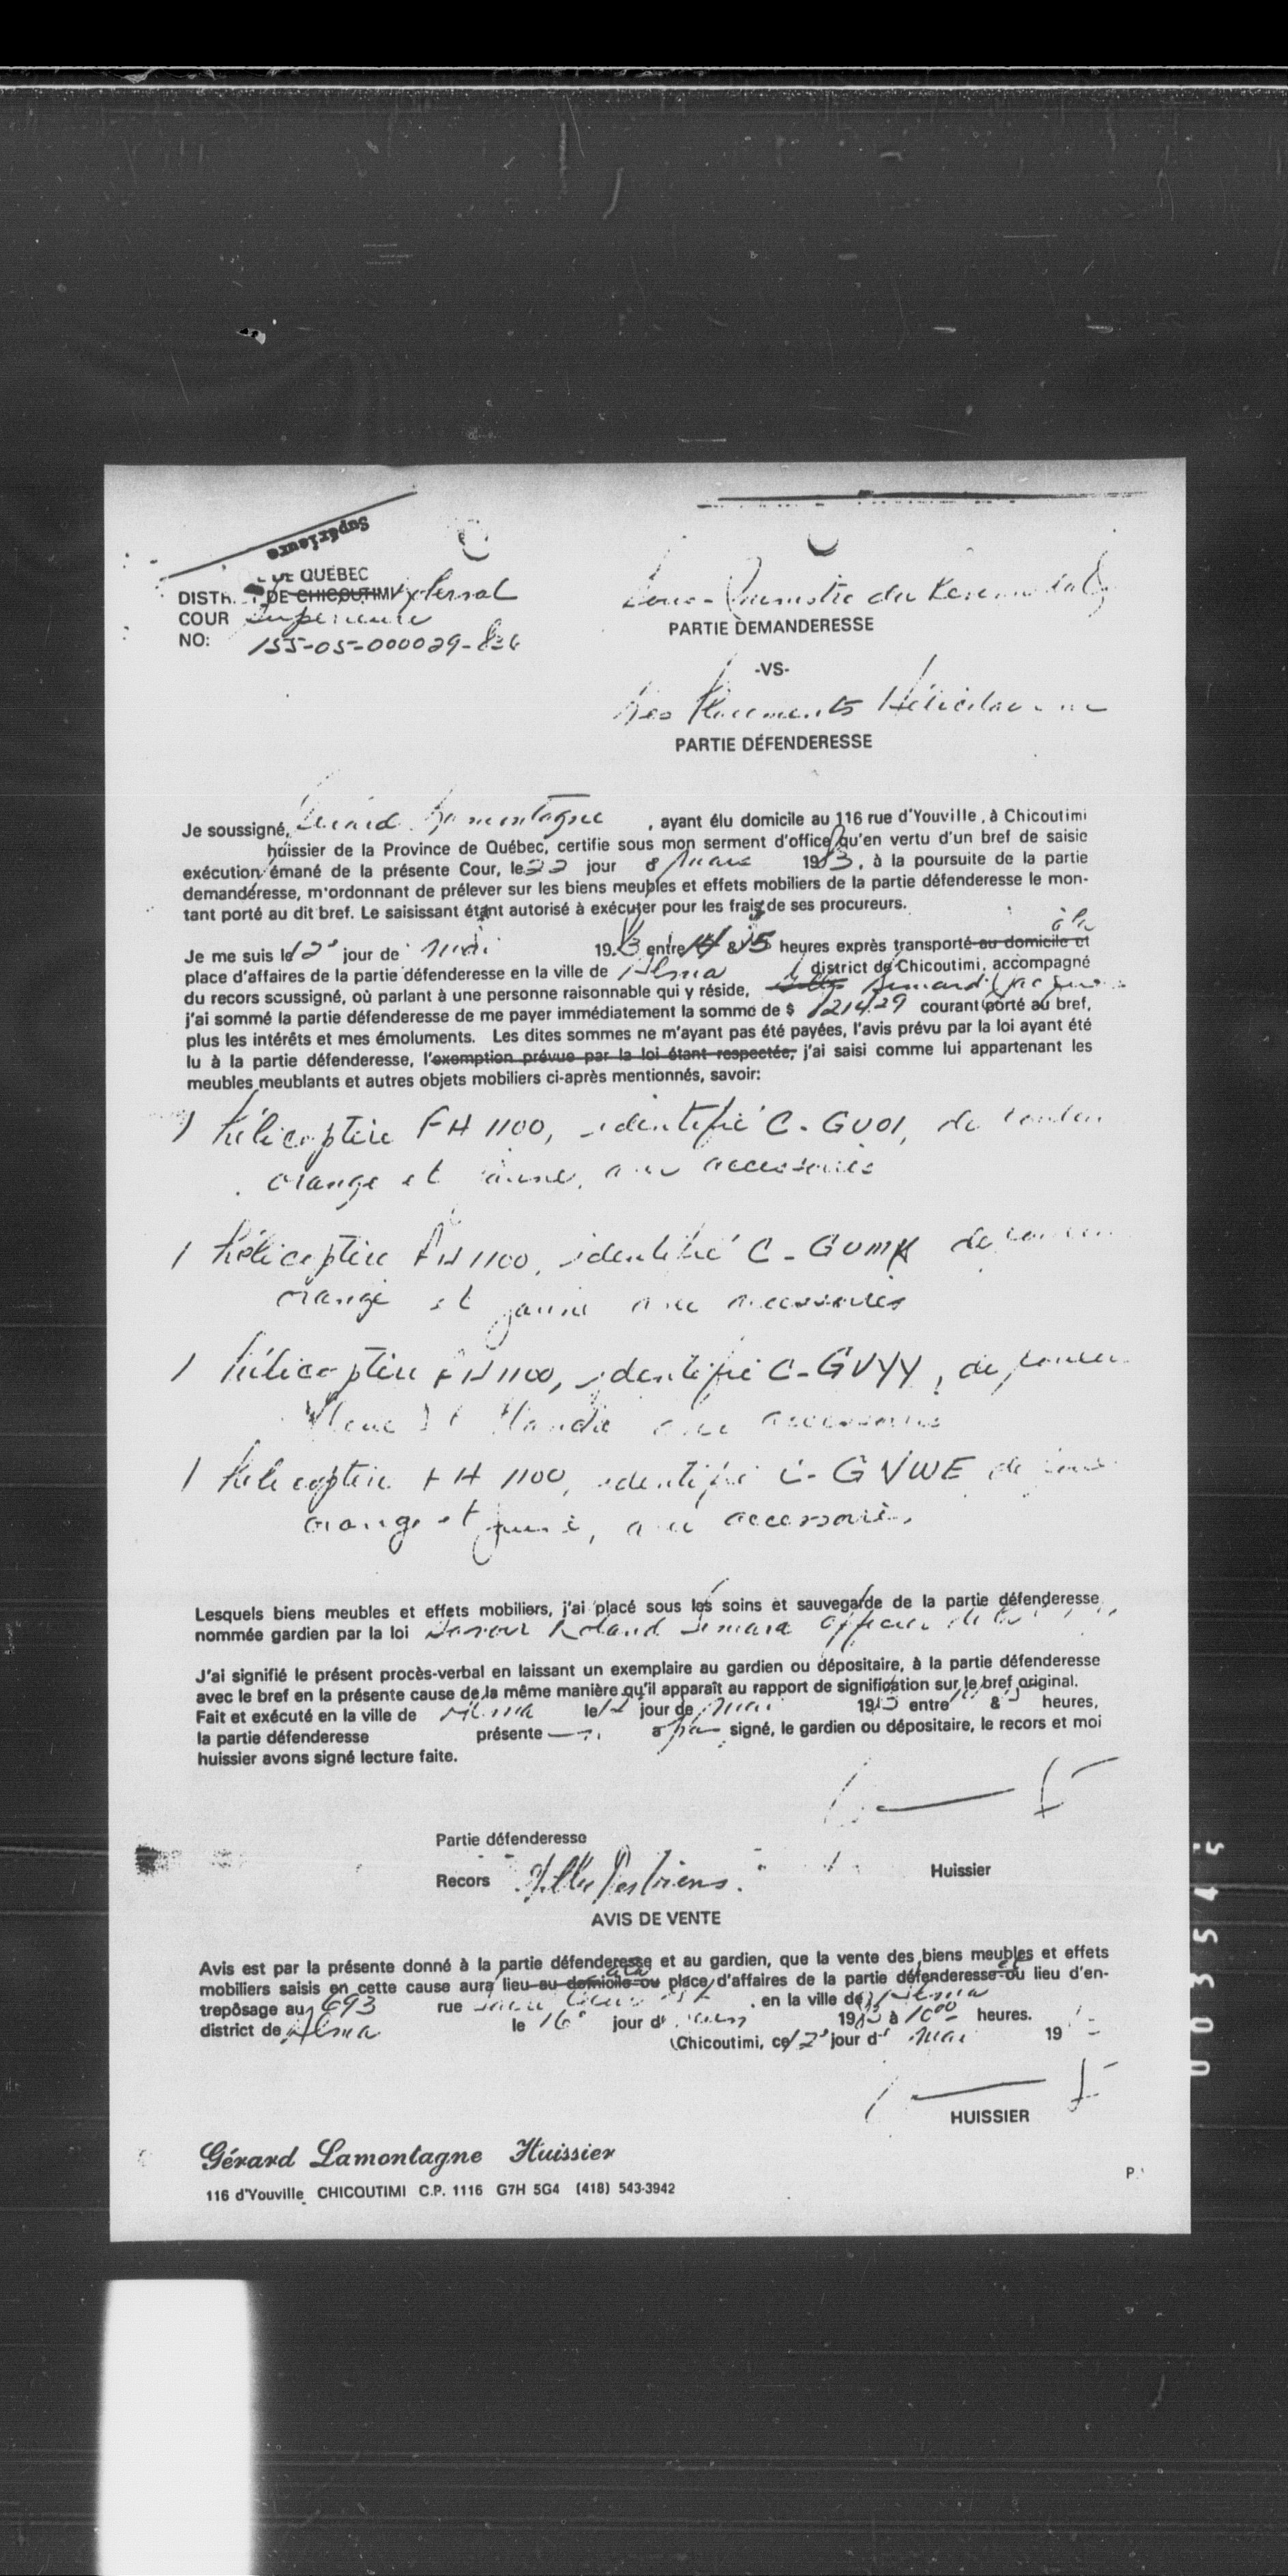 Supérieure
DE QUÉBEC
DISTR. DE CHICOUTIMI
COUR Supérieure
NO: 155-05-000029-836
PARTIE DEMANDERESSE
-VS-
Les Placements
PARTIE DÉFENDERESSE
Je soussigné, Gérard Lamontagne , ayant élu domicile au 116 rue d'Youville , à Chicoutimi
huissier de la Province de Québec, certifie sous mon serment d'office qu'en vertu d'un bref de saisie
exécution émané de la présente Cour, le 22 jour d mars 1983, à la poursuite de la partie
demanderesse, m'ordonnant de prélever sur les biens meubles et effets mobiliers de la partie défenderesse le mon-
tant porté au dit bref. Le saisissant étant autorisé à exécuter pour les frais de ses procureurs.
à la
Je me suis le 12e jour de mai 1983 entre 14 & 15 heures exprès transporté au domicile et
place d'affaires de la partie défenderesse en la ville de Alma district de Chicoutimi, accompagné
du recors soussigné, où parlant à une personne raisonnable qui y réside,
j'ai sommé la partie défenderesse de me payer immédiatement la somme de $ courant porté au bref,
plus les intérêts et mes émoluments. Les dites sommes ne m'ayant pas été payées, l'avis prévu par la loi ayant été
lu à la partie défenderesse, l'exemption prévue par la loi étant respectée, j'ai saisi comme lui appartenant les
meubles meublants et autres objets mobiliers ci-après mentionnés, savoir:
1 hélicoptère FH 1100, identifié C-GUOI, de couleur
orange et jaune, avec accessoires
1 hélicoptère FH 1100, identifié C-GUMK de couleur
orange et jaune avec accessoires
1 hélicoptère FH 1100, identifié C-GVYY, de couleur
avec accessoires
1 hélicoptère FH 1100, identifié C-GVWE de couleur
orange et jaune, avec accessoires
Lesquels biens meubles et effets mobiliers, j'ai placé sous les soins et sauvegarde de la partie défenderesse
nommée gardien par la loi Roland Simard officier de la
J'ai signifié le présent procès-verbal en laissant un exemplaire au gardien ou dépositaire, à la partie défenderesse
avec le bref en la présente cause de la même manière qu'il apparaît au rapport de signification sur le bref original.
Fait et exécuté en la ville de Alma le 12 jour de mai 1983 entre & heures,
la partie défenderesse présente a pas signé, le gardien ou dépositaire, le recors et moi
huissier avons signé lecture faite.
Partie défenderesse
Recors Huissier
AVIS DE VENTE
Avis est par la présente donné à la partie défenderesse et au gardien, que la vente des biens meubles et effets
mobiliers saisis en cette cause aura lieu au domicile ou place d'affaires de la partie défenderesse ou lieu d'en-
trepôsage au 693 rue , en la ville de Alma
district de Alma le 16e jour d 1983 à 10 00 heures.
Chicoutimi, ce 12e jour d mai 19
HUISSIER
Gérard Lamontagne Huissier
116 d'Youville CHICOUTIMI C.P. 1116 G7H 5G4 (418) 543-3942
003545